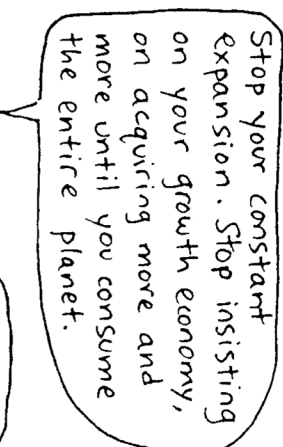 Stop your constant
expansion. Stop insisting
on your growth economy,
on acquiring more and
more until you consume
the entire planet.